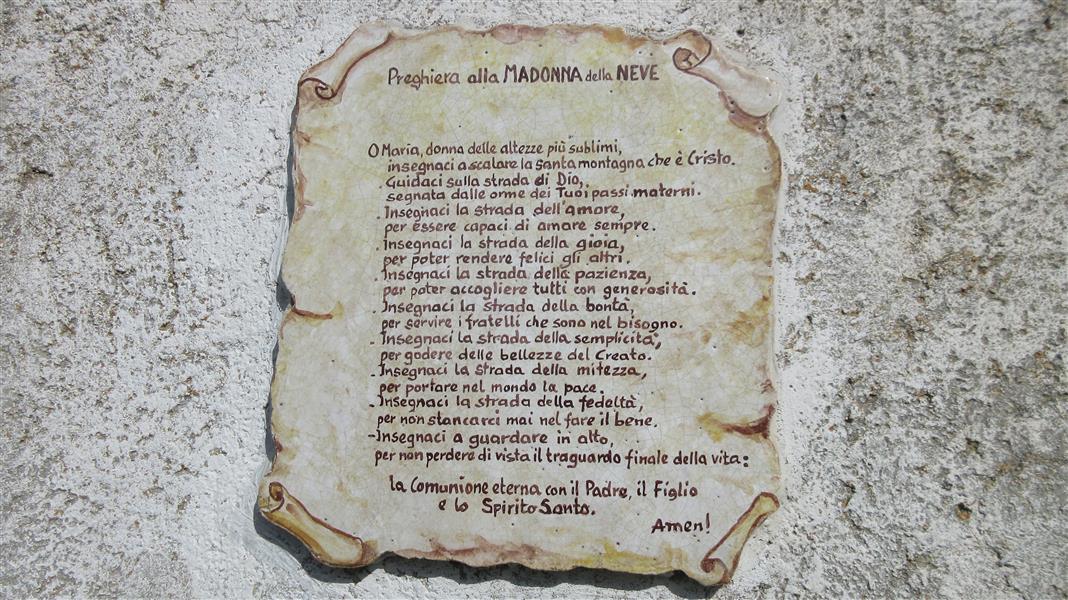 Preghiera alla MADONNA della NEVE
O Maria, donna delle altezze più sublimi,
insegnaci a scalare la santa montagna che è Cristo.
. Guidaci sulla strada di Dio,
segnata dalle orme dei Tuoi passi materni.
. Insegnaci la strada dell'amore,
per essere capaci di amare sempre.
. Insegnaci la strada della gioia,
per poter rendere felici gli altri.
. Insegnaci la strada della pazienza,
per poter accogliere tutti con generosità.
. Insegnaci la strada della bontà,
per servire i fratelli che sono nel bisogno.
. Insegnaci la strada della semplicità,
per godere delle bellezze del Creato.
. Insegnaci la strada della mitezza,
per portare nel mondo la pace.
. Insegnaci la strada della fedeltà,
per non stancarci mai nel fare il bene.
- Insegnaci a guardare in alto,
per non perdere di vista il traguardo finale della vita:
la Comunione eterna con il Padre, il Figlio
e lo Spirito Santo.
Amen!